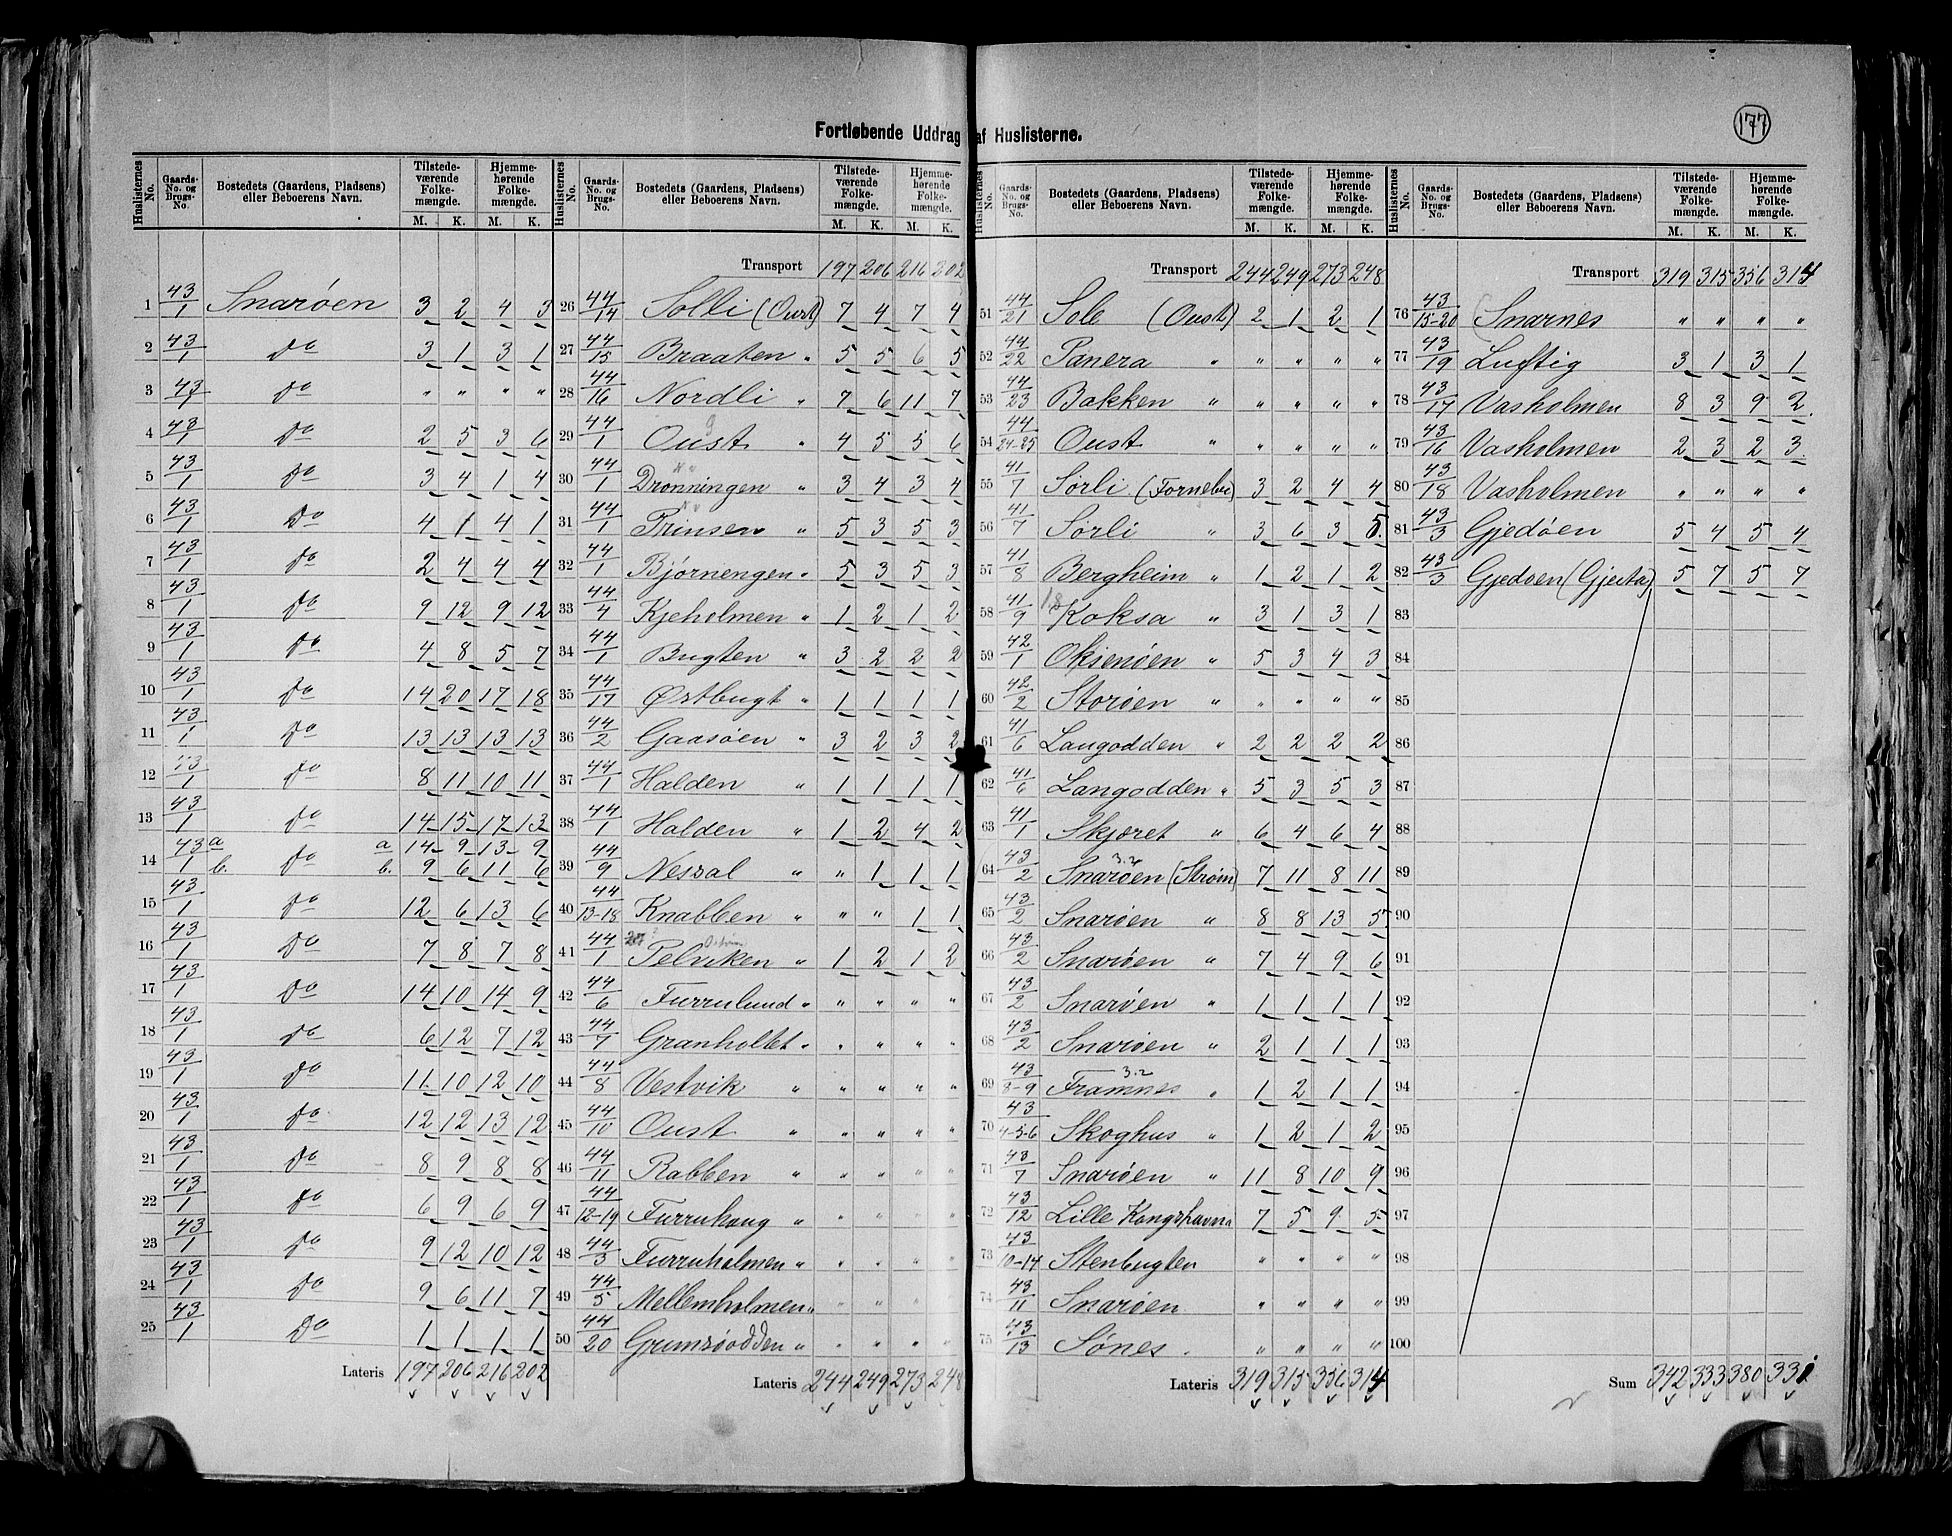 177
Fortløbende Uddrag af Huslisterne.
Huslisternes No. | Gaards-No. og Brugs-No. | Bostedets (Gaardens, Pladsens) eller Beboerens Navn. | Tilstedeværende Folkemængde. M. K. | Hjemmehørende Folkemængde. M. K.
1 43/1 Snarøen 3 2 4 3
2 43/1 Do 3 1 3 1
3 43/1 Do " " " "
4 43/1 Do 2 5 3 6
5 43/1 Do 3 4 1 4
6 43/1 Do 4 1 4 1
7 43/1 Do 2 4 4 4
8 43/1 Do 9 12 9 12
9 43/1 Do 4 8 5 7
10 43/1 Do 14 20 17 18
11 43/1 Do 13 13 13 13
12 43/1 Do 8 11 10 11
13 43/1 Do 14 15 17 13
14 43/1 a Do a 14 9 13 9
b. b. 9 6 11 6
15 43/1 Do 12 6 13 6
16 43/1 Do 7 8 7 8
17 43/1 Do 14 10 14 9
18 43/1 Do 6 12 7 12
19 43/1 Do 11 10 12 10
20 43/1 Do 12 12 13 12
21 43/1 Do 8 9 8 8
22 43/1 Do 6 9 6 9
23 43/1 Do 9 12 10 12
24 43/1 Do 9 6 11 7
25 43/1 Do 1 1 1 1
Lateris 197 206 216 202
Huslisternes No. | Gaards-No. og Brugs-No. | Bostedets (Gaardens, Pladsens) eller Beboerens Navn. | Tilstedeværende Folkemængde. M. K. | Hjemmehørende Folkemængde. M. K.
Transport 197 206 216 202
26 44/14 Solli (Oust) 7 4 7 4
27 44/15 Braaten " 5 5 6 5
28 44/16 Nordli " 7 6 11 7
29 44/1 Oust " 4 5 5 6
30 44/1 Dronningen " 3 4 3 4
31 44/1 Prinsen " 5 3 5 3
32 44/1 Bjørnengen " 5 3 5 3
33 44/4 Kjeholmen " 1 2 1 2
34 44/1 Bugten " 3 2 2 2
35 44/17 Østbugt " 1 1 1 1
36 44/2 Gaasøen " 3 2 3 2
37 44/1 Halden " 1 1 1 1
38 44/1 Halden " 1 2 4 2
39 44/9 Nessal " " 1 1 1
40 44/13-18 Knabben " " " 1 1
41 44/1 Telviken " 1 2 1 2
42 44/6 Furrulund " " " " "
43 44/7 Granholtet " " " " "
44 44/8 Vestvik " " " " "
45 44/10 Oust " " " " "
46 44/11 Rabben " " " " "
47 44/12-19 Furruhaug " " " " "
48 44/3 Furruholmen " " " " "
49 44/5 Mellemholmen " " " " "
50 44/20 Grimsøodden " " " " "
Lateris 244 249 273 248
Huslisternes No. | Gaards-No. og Brugs-No. | Bostedets (Gaardens, Pladsens) eller Beboerens Navn. | Tilstedeværende Folkemængde. M. K. | Hjemmehørende Folkemængde. M. K.
Transport 244 249 273 248
51 44/21 Sole (Oust) 2 1 2 1
52 44/22 Panera " " " " "
53 44/23 Bakken " " " " "
54 44/24-25 Oust " " " " "
55 41/7 Sørli (Fornebo) 3 2 4 4
56 41/7 Sørli " 3 6 3 5.
57 41/8 Bergheim " 1 2 1 2
58 41/9 18 Koksa " 3 1 3 1
59 42/1 Oksenøen " 5 3 4 3
60 42/2 Storøen " " " " "
61 41/6 Langodden " 2 2 2 2
62 41/6 Langodden " 5 3 5 3
63 41/1 Skjæret " 6 4 6 4
64 43/2 Snarøen (Strøm) 7 11 8 11
65 43/2 Snarøen " 8 8 13 5
66 43/2 Snarøen " 7 4 9 6
67 43/2 Snarøen " 1 1 1 1
68 43/2 Snarøen " 2 1 1 1
69 43/8-9 Framnes " 1 2 1 1
70 43/4-5-6 Skoghus " 1 2 1 2
71 43/7 Snarøen " 11 8 10 9
72 43/12 Lille Kongshavn 7 5 9 5
73 43/10-14 Stenbugten " " " "
74 43/11 Snarøen " " " "
75 43/13 Sønes . " " " "
Lateris 319 315 356 314
Huslisternes No. | Gaards-No. og Brugs-No. | Bostedets (Gaardens, Pladsens) eller Beboerens Navn. | Tilstedeværende Folkemængde. M. K. | Hjemmehørende Folkemængde. M. K.
Transport 319 315 356 314
76 43/15-20 Snarnes " " " "
77 43/19 Luftig 3 1 3 1
78 43/17 Vasholmen 8 3 9 2
79 43/16 Vasholmen 2 3 2 3
80 43/18 Vasholmen " " " "
81 43/3 Gjedøen 5 4 5 4
82 43/3 Gjedøen (Gjeita) 5 7 5 7
83
84
85
86
87
88
89
90
91
92
93
94
95
96
97
98
99
100
Sum 342 333 380 331